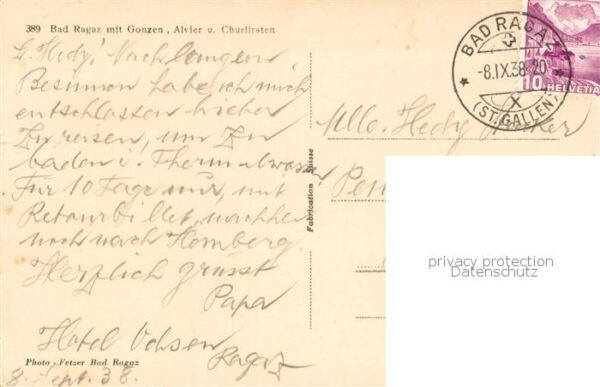 389 Bad Ragaz mit Gonzen, Alvier u. Churfirsten
L. Hedy! Nach langem
Besinnen habe ich mich
entschlossen hieher
zu reisen, um zu
baden i. Thermalwasser
Für 10 Tage nur, mit
Retourbillet, nachher
noch nach Homberg.
Herzlich grüsst
Papa
Hotel Ochsen
Ragaz
Photo - Fetzer Bad Ragaz
8. Sept. 38.
Fabrication Suisse
BAD RAGAZ
-8.IX.38.20
X
(ST. GALLEN)
10 HELVETIA
Mlle. Hedy
privacy protection
Datenschutz